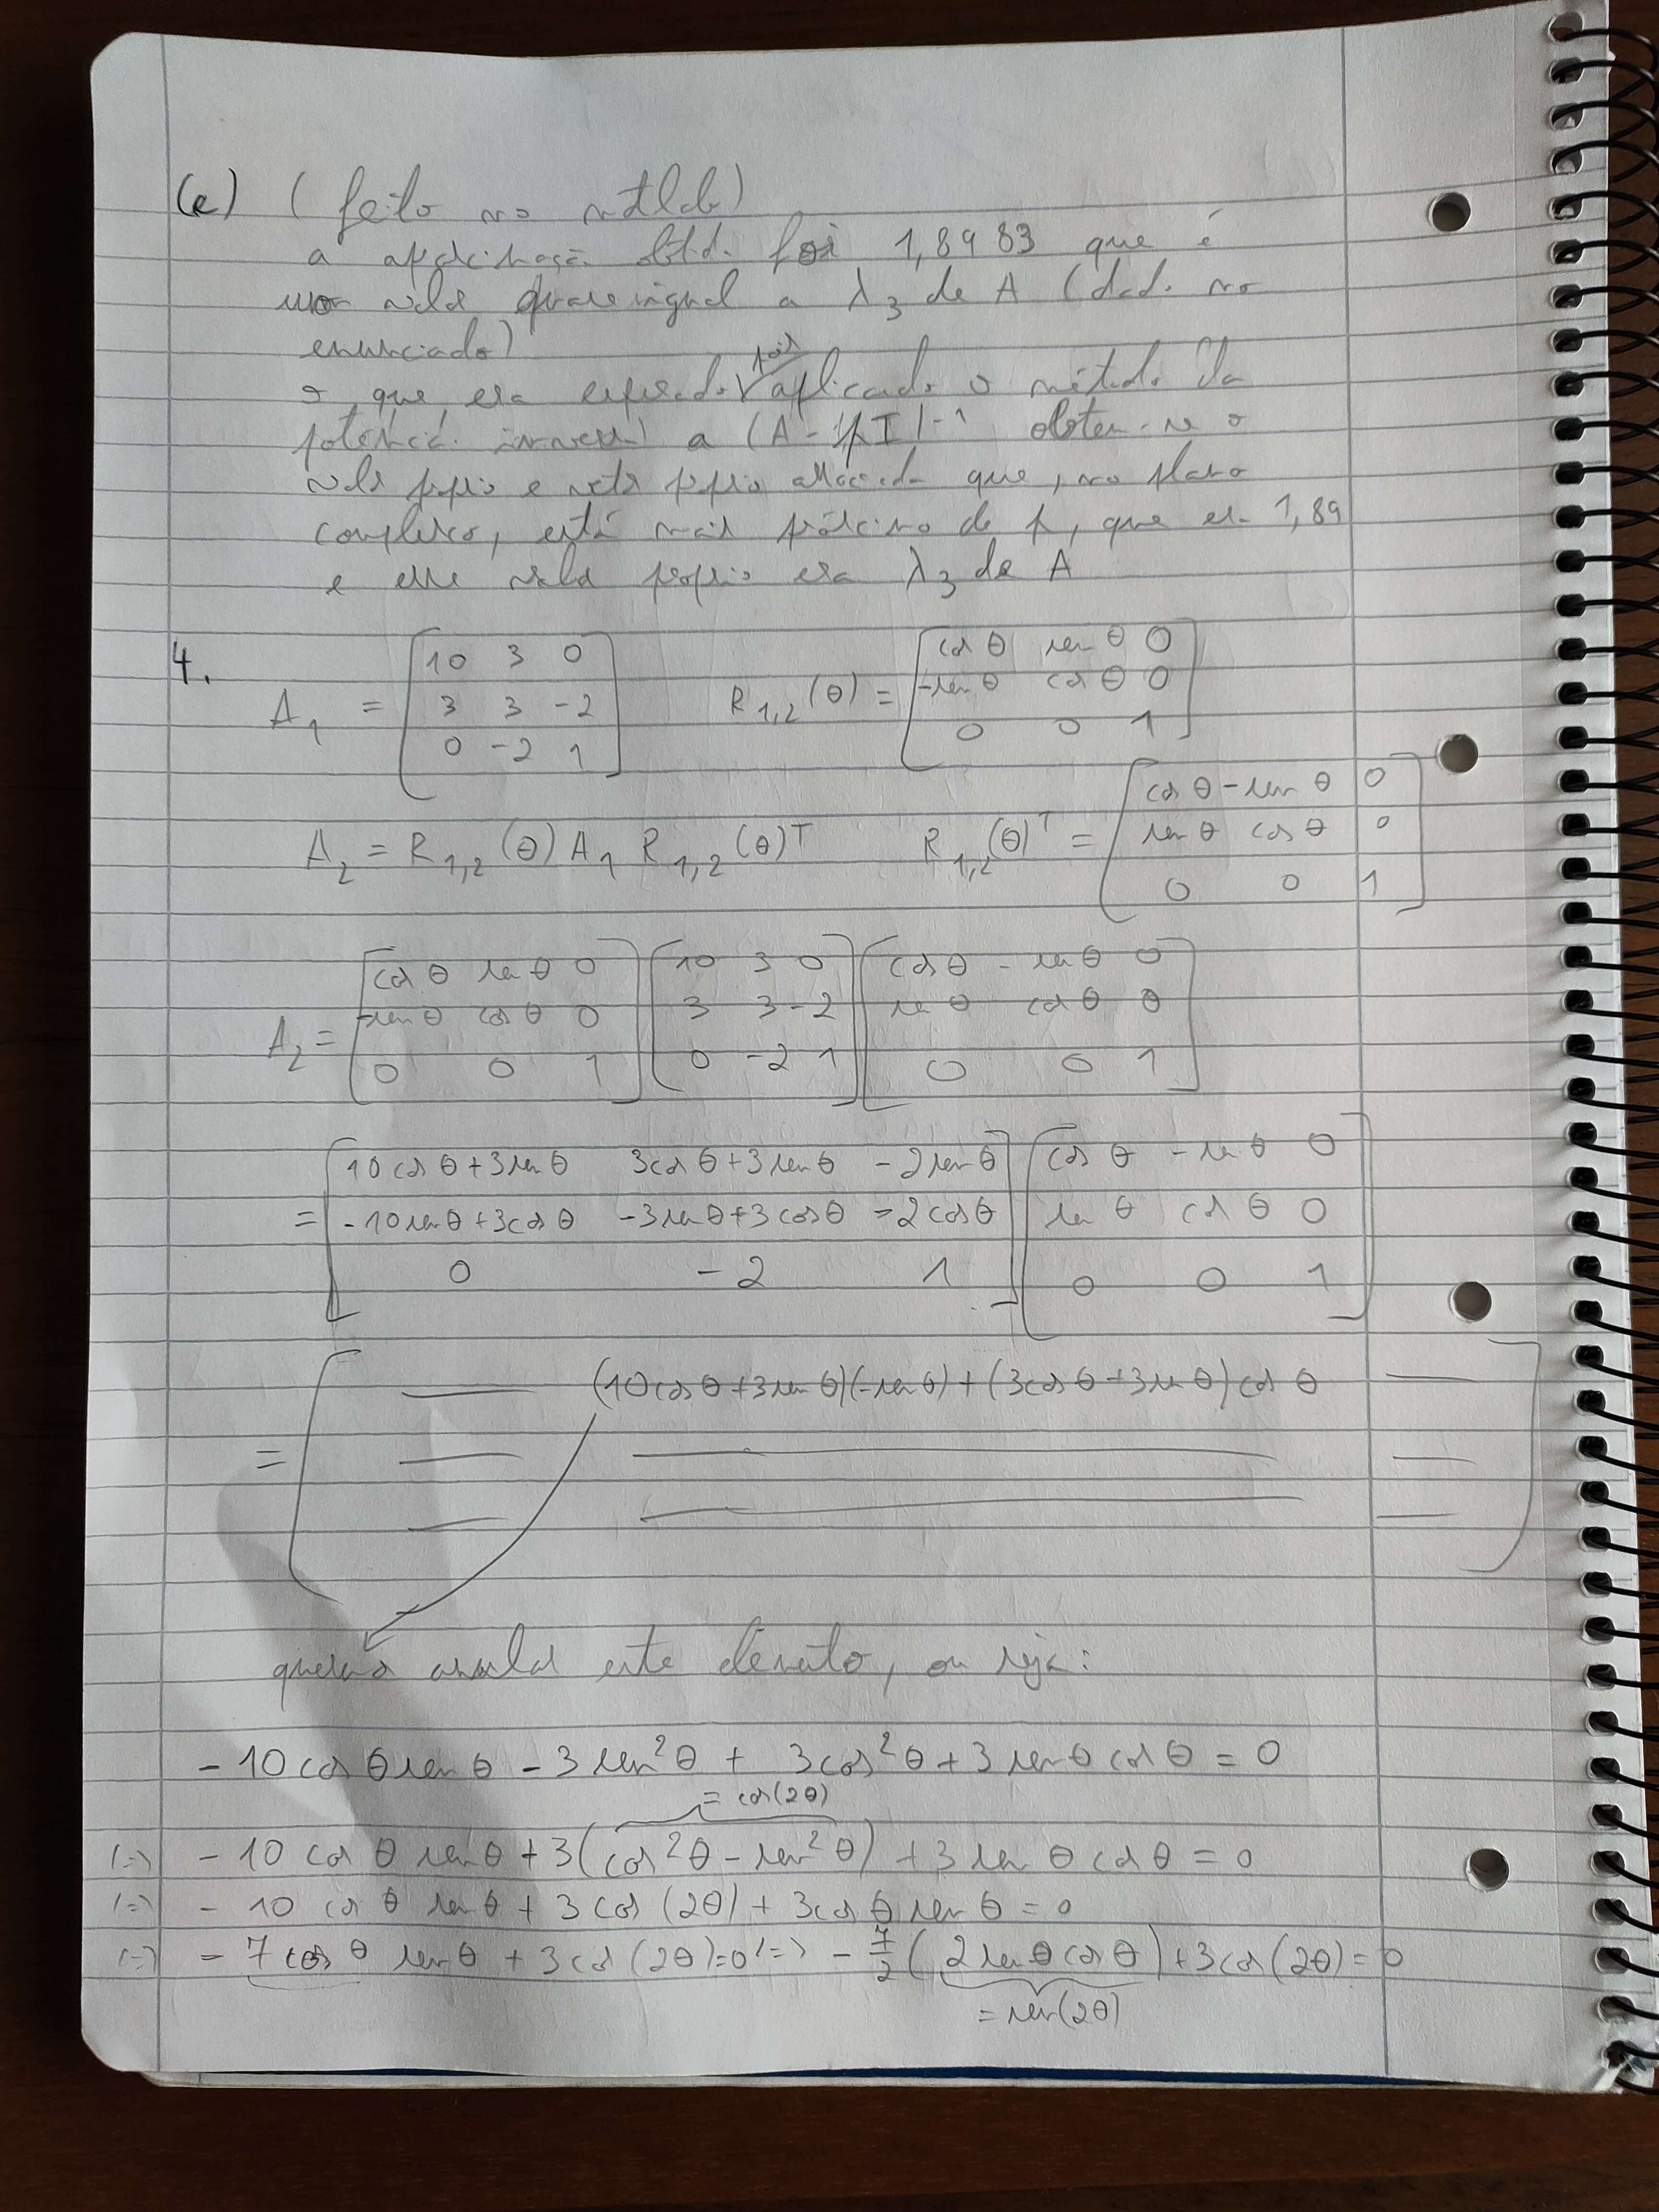 (e) (feito no matlab)
a aproximação obtida foi 1,8983 que é
um valor quase igual a λ3 de A (dado no
enunciado)
o que era esperado pois aplicando o método da
potência inversa a (A - pI)-1 obtem-se o
valor próprio e vetor próprio associado que, no plano
complexo, está mais próximo de p, que era 1,89
e esse valor próprio era λ3 de A
4. A1 = [10 3 0; 3 3 -2; 0 -2 1] R1,2(θ) = [cos θ sen θ 0; -sen θ cos θ 0; 0 0 1]
A2 = R1,2(θ) A1 R1,2(θ)T R1,2(θ)T = [cos θ -sen θ 0; sen θ cos θ 0; 0 0 1]
A2 = [cos θ sen θ 0; -sen θ cos θ 0; 0 0 1] [10 3 0; 3 3 -2; 0 -2 1] [cos θ -sen θ 0; sen θ cos θ 0; 0 0 1]
= [10 cos θ + 3 sen θ 3 cos θ + 3 sen θ -2 sen θ; -10 sen θ + 3 cos θ -3 sen θ + 3 cos θ -2 cos θ; 0 -2 1] [cos θ -sen θ 0; sen θ cos θ 0; 0 0 1]
= [ (10 cos θ + 3 sen θ)(-sen θ) + (3 cos θ + 3 sen θ) cos θ ]
queremos anular este elemento, ou seja:
- 10 cos θ sen θ - 3 sen² θ + 3 cos² θ + 3 sen θ cos θ = 0
= cos(2θ)
(=) - 10 cos θ sen θ + 3(cos² θ - sen² θ) + 3 sen θ cos θ = 0
(=) - 10 cos θ sen θ + 3 cos(2θ) + 3 cos θ sen θ = 0
(=) - 7 cos θ sen θ + 3 cos(2θ) = 0 (=) - 7/2 (2 sen θ cos θ) + 3 cos(2θ) = 0
= sen(2θ)